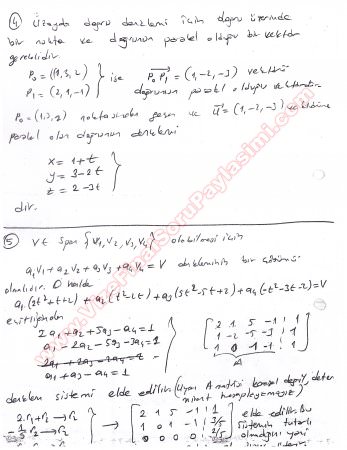 ④ Uzayda doğru denklemi için doğru üzerinde
bir nokta ve doğrunun paralel olduğu bir vektör
gereklidir.
P₀ = (1,3,2)
P₁ = (2,1,-1) } ise P₀P₁ = (1,-2,-3) vektörü
doğrunun paralel olduğu vektördür.
P₀ = (1,3,2) noktasından geçen ve u = (1,-2,-3) vektörüne
paralel olan doğrunun denklemi
x = 1+t
y = 3-2t
z = 2-3t
dir.
⑤ V ∈ Span {V₁, V₂, V₃, V₄} olabilmesi için
a₁V₁ + a₂V₂ + a₃V₃ + a₄V₄ = V denkleminin bir çözümü
olmalıdır. O halde
a₁(2t²+t+1) + a₂(t²-2t) + a₃(5t²-5t+2) + a₄(-t²-3t-2) = V
eşitliğinden
2a₁ + a₂ + 5a₃ - a₄ = 1
a₁ - 2a₂ - 5a₃ - 3a₄ = 1
a₁ + a₃ - a₄ = 1
[ 2 1 5 -1 | 1
1 -2 -5 -3 | 1
1 0 -1 -1 | 1 ]
A
denklem sistemi elde edilir. (Uyarı A matrisi karesel değil, deter
minant hesaplayamayız)
2r₁+r₂→r₂
-1/5 r₂→r₂
→ [ 2 1 5 -1 | 1
1 0 1 -1 | 3/5
0 0 0 0 | 2/5 ]
elde edilir. Bu
sistemin tutarlı
olmadığını yani
www.VizeFinalSoruPaylasimi.com